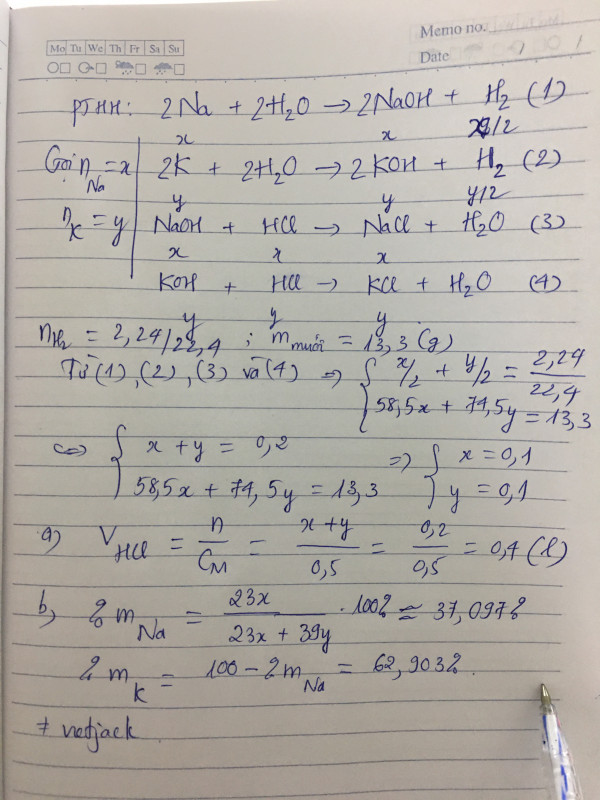 Memo no.
Mo Tu We Th Fr Sa Su
Date
PTHH: 2Na + 2H₂O → 2NaOH + H₂ (1)
x x x/2
Gọi n_Na = x 2K + 2H₂O → 2KOH + H₂ (2)
y y y/2
n_K = y NaOH + HCl → NaCl + H₂O (3)
x x x
KOH + HCl → KCl + H₂O (4)
y y y
n_H₂ = 2,24/22,4 ; m_muối = 13,3 (g)
Từ (1), (2), (3) và (4) ⇒ { x/2 + y/2 = 2,24/22,4
58,5x + 74,5y = 13,3
⇔ { x + y = 0,2 ⇒ { x = 0,1
58,5x + 74,5y = 13,3 y = 0,1
a) V_HCl = n/C_M = x+y/0,5 = 0,2/0,5 = 0,4 (l)
b, % m_Na = 23x/23x + 39y . 100% ≈ 37,097%
% m_K = 100 - % m_Na = 62,903%.
# netjack